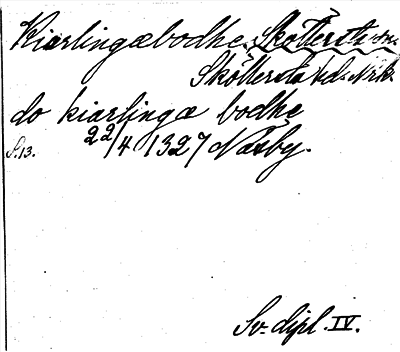 Kiarlingæbodhe. Skötterstа sn.
Skötlersta hd. Nrk.
do kiarlingæ bodhe
S. 13. 22/4 1327 Näsby.
Sv. dipl. IV.